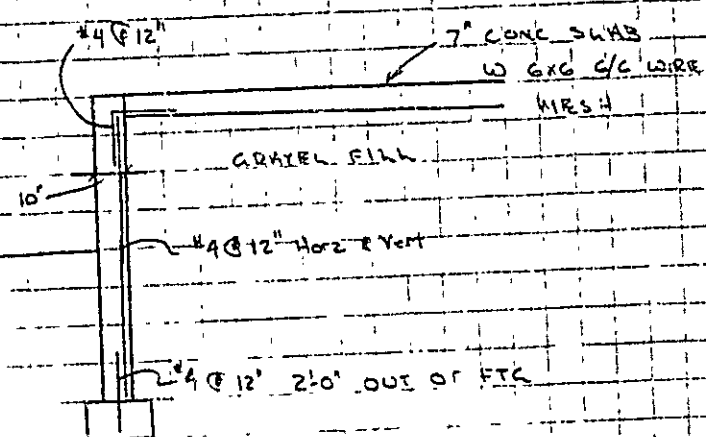 #4 @ 12"
7" CONC SLAB
W 6x6 6/6 WIRE
MESH
GRAVEL FILL
10"
#4 @ 12" Horz & Vert
#4 @ 12" 2'-0" OUT OF FTG